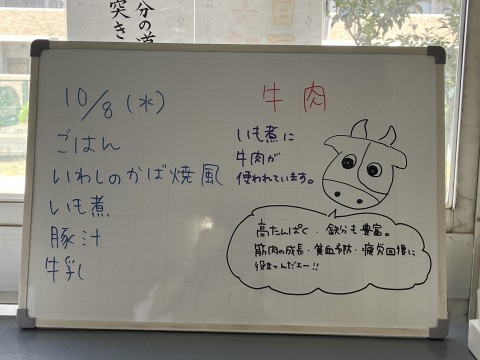 分の道
突き
10/8(水)
ごはん
いわしのかば焼風
いも煮
豚汁
牛乳
牛肉
いも煮に
牛肉が
使われています。
高たんぱく・鉄分も豊富。
筋肉の成長・貧血予防・疲労回復に
役立つんだよー!!